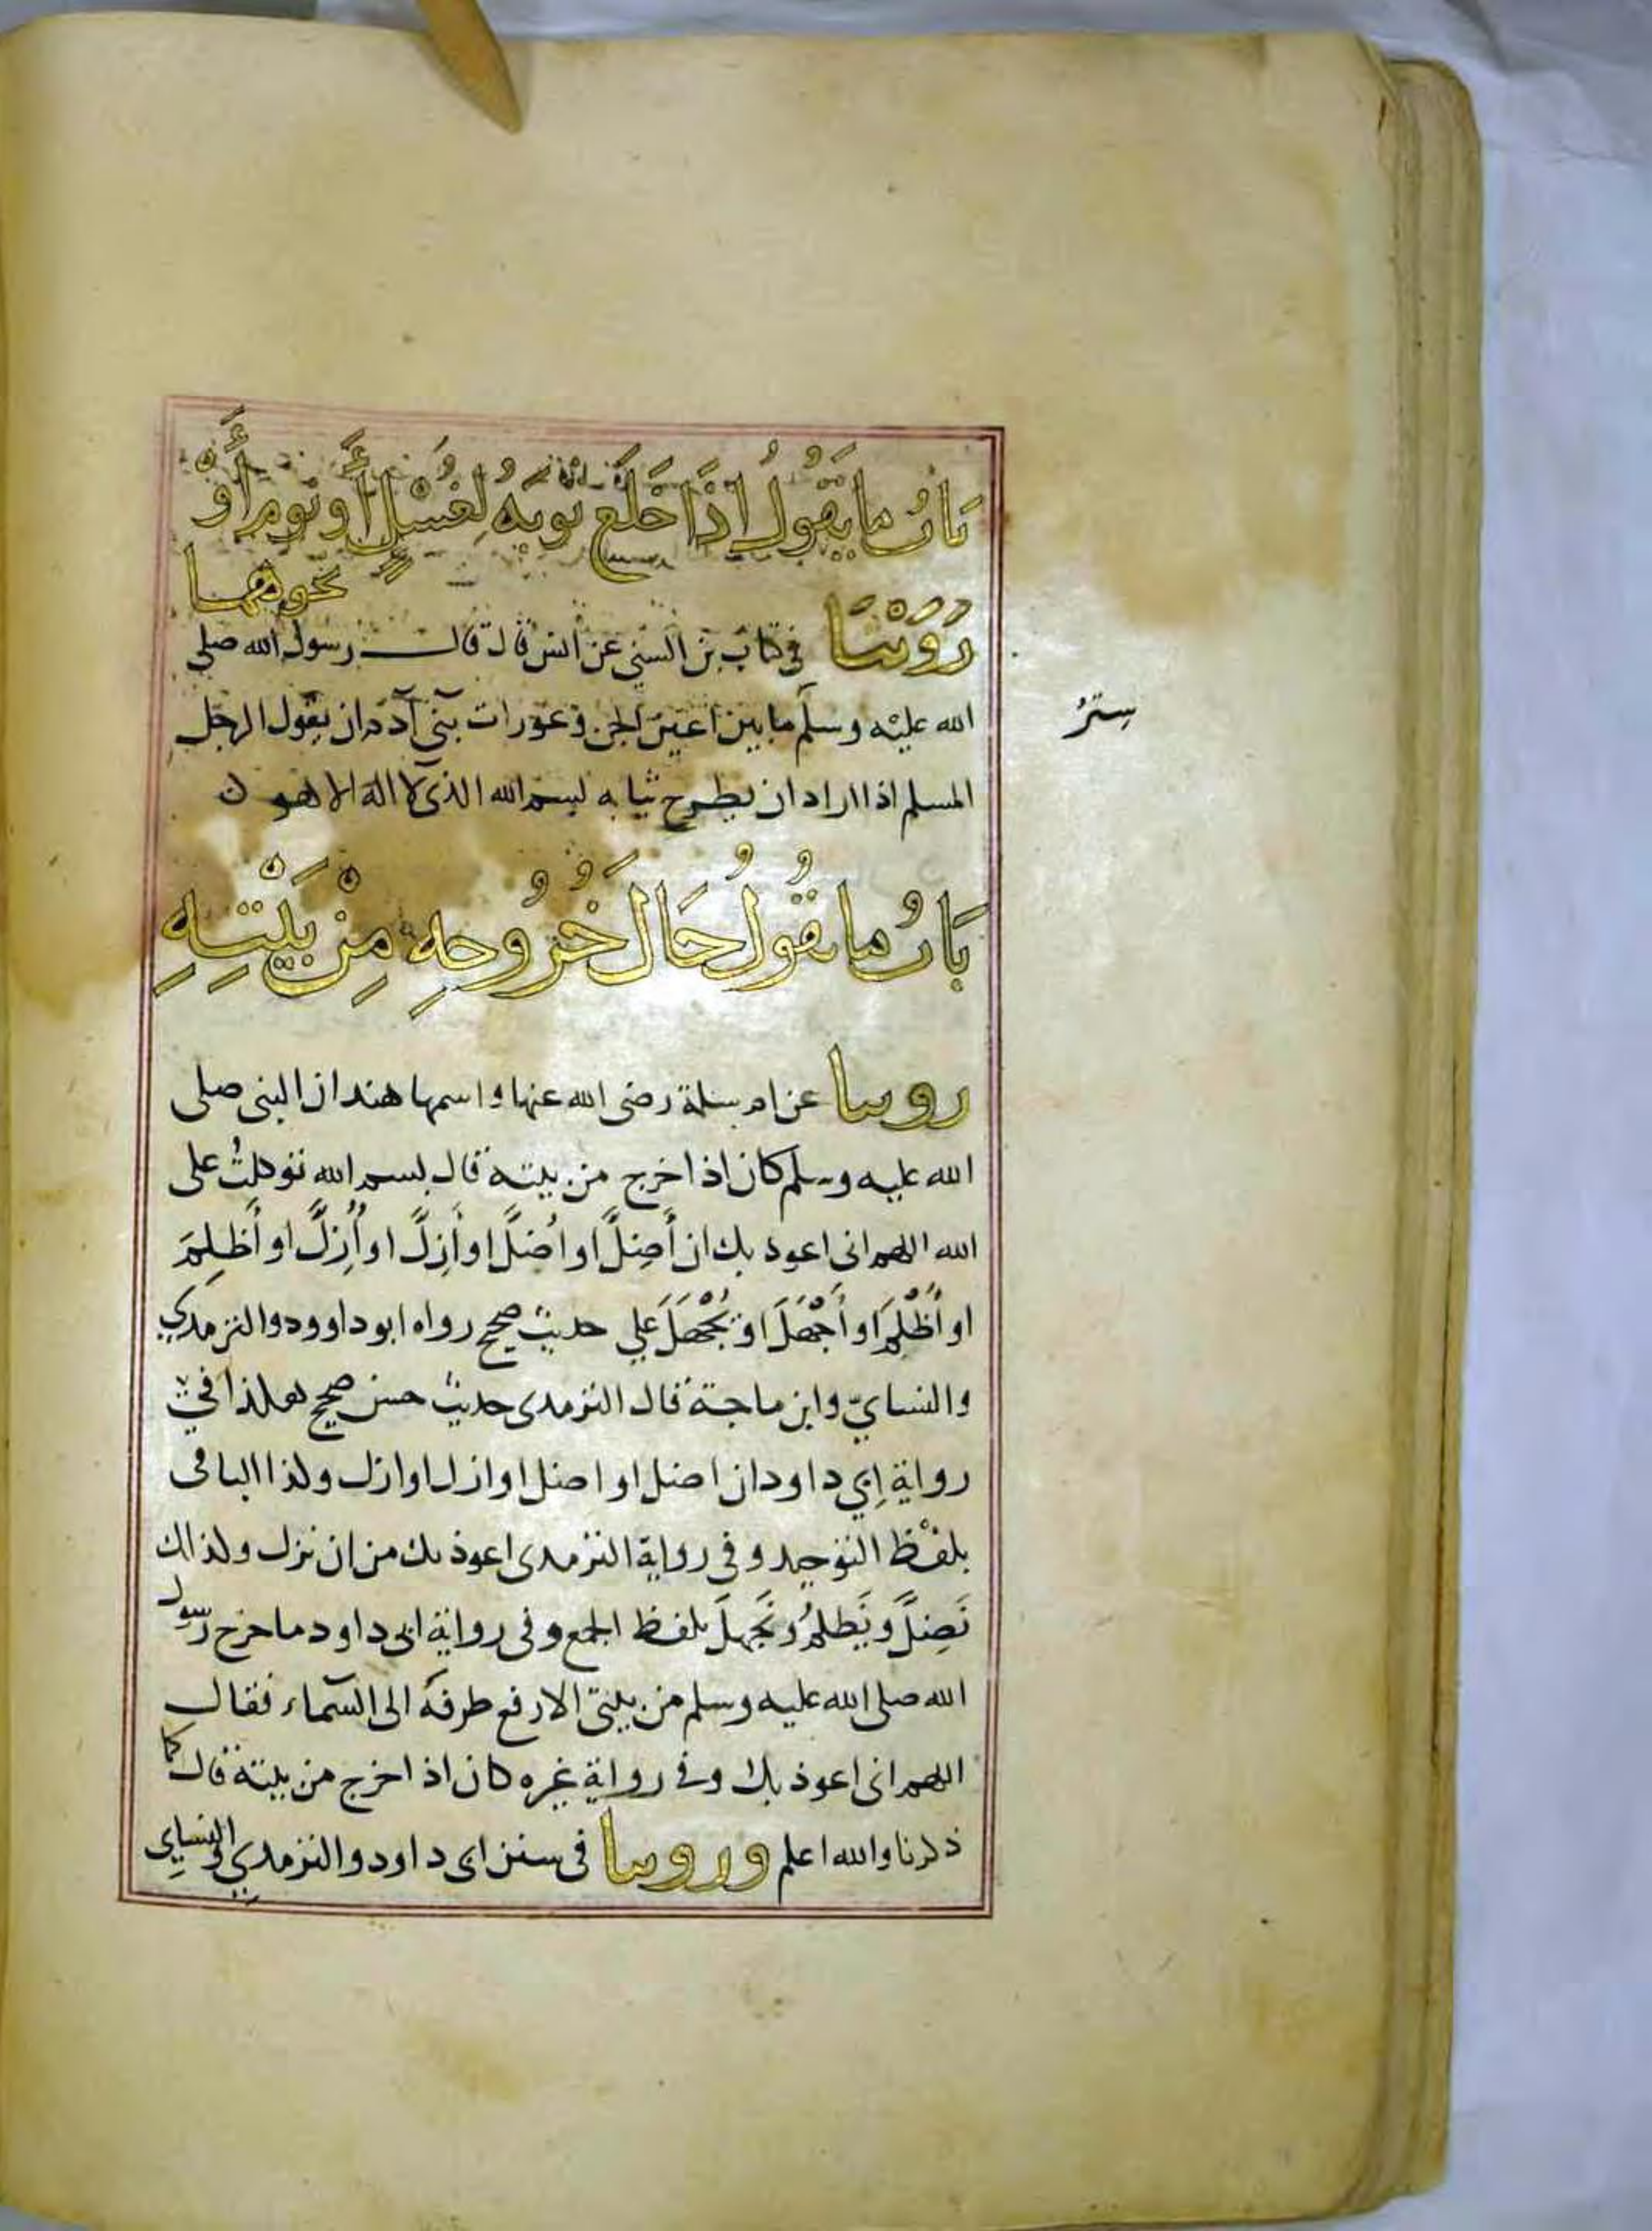 باب ما يقول إذا خلع ثوبه لغسل أو نوم أو
نحوهما
روينا في كتاب بن السني عن انس قال قال رسول الله صلى
الله عليه وسلم ما بين اعين الجن وعورات بني آدم ان يقول الرجل
ستر
المسلم اذا اراد ان يطرح ثيابه بسم الله الذي لا اله الا هو
باب ما يقول حال خروجه من بيته
روينا عن ام سلمة رضى الله عنها واسمها هند ان النبى صلى
الله عليه وسلم كان اذا خرج من بيته قال بسم الله توكلت على
الله اللهم انى اعوذ بك ان أَضِلَّ او اُضَلَّ او أَزِلَّ او أُزِلَّ او أَظْلِمَ
او أُظْلَمَ او أَجْهَلَ او يُجْهَلَ علي حديث صحيح رواه ابو داوود والترمذي
والنسايّ وابن ماجة قال الترمدى حديث حسن صحيح هكذا في
رواية ابي داود ان اضل او اضل او ازل او ازل وكذا الباقى
بلفظ التوحيد وفى رواية الترمدى اعوذ بك من ان نزل وكذالك
نَضِلَّ ونَظلم ونَجهلَ بلفظ الجمع وفى رواية ابى داود ما خرج رسول
الله صلى الله عليه وسلم من بيتى الا رفع طرفه الى السماء فقال
اللهم انى اعوذ بك وفي رواية غيره كان اذا خرج من بيته قال كما
ذكرنا والله اعلم وروينا فى سنن ابى داود والترمدي والنسايى